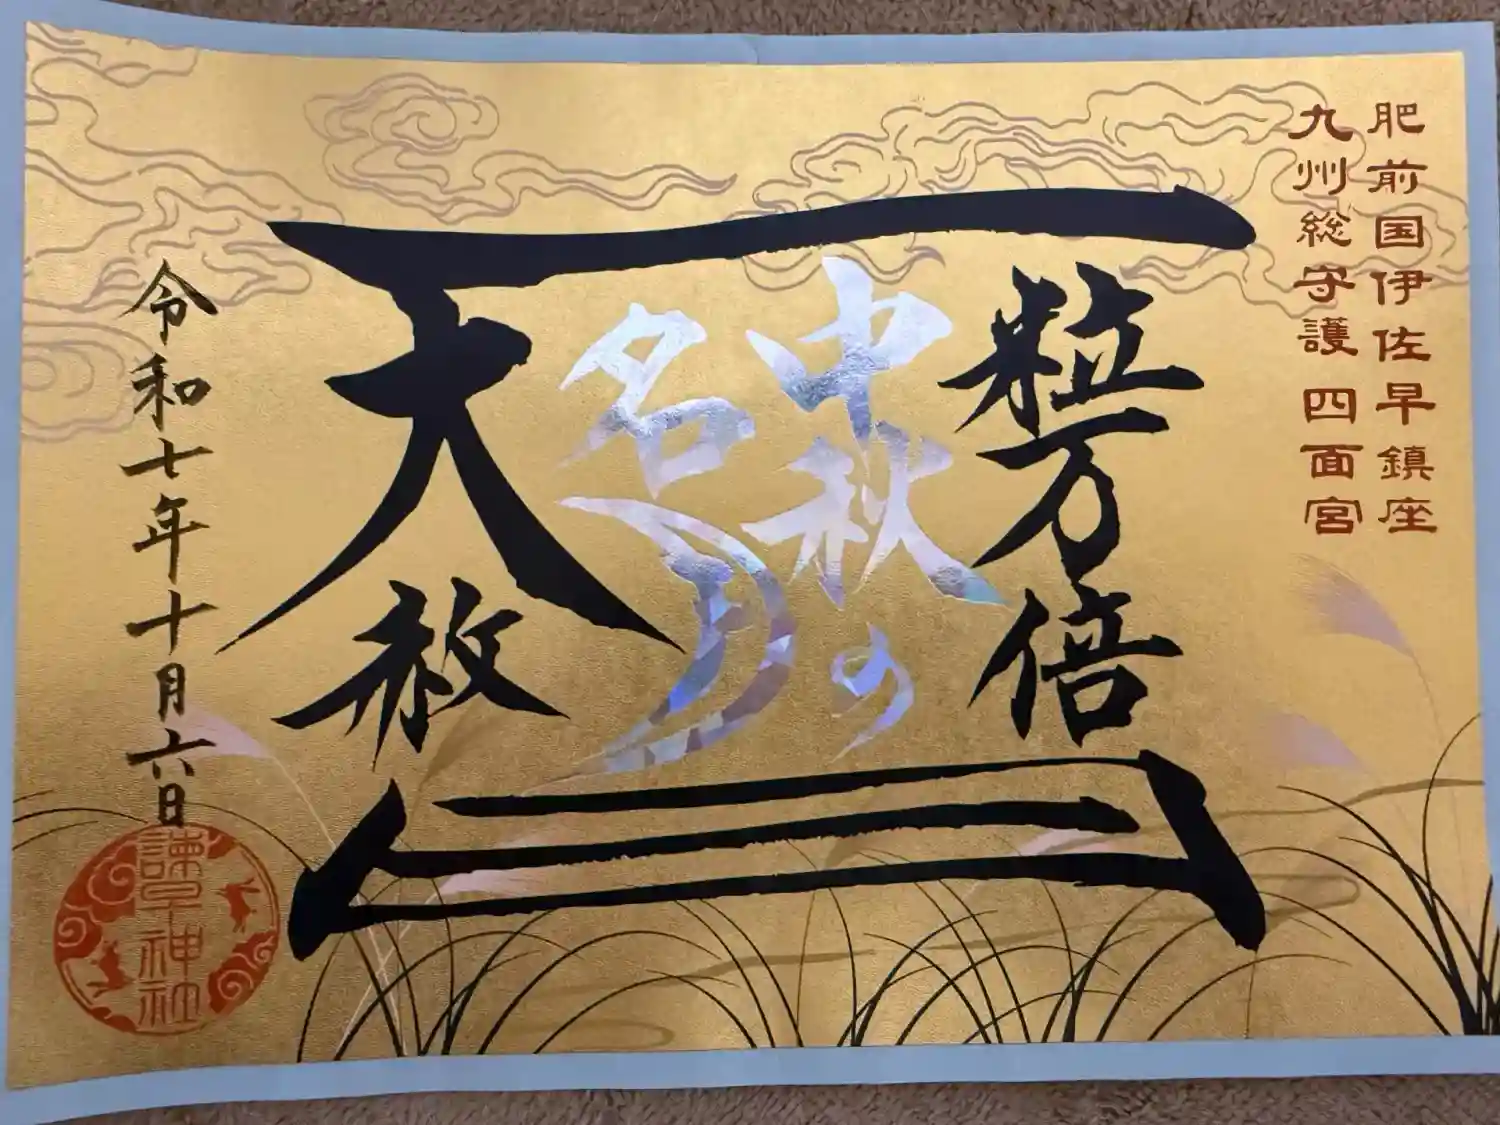 肥前国伊佐早鎮座
九州総守護 四面宮
一粒万倍
中秋の
名月
天赦
日
令和七年十月六日
諫早神社